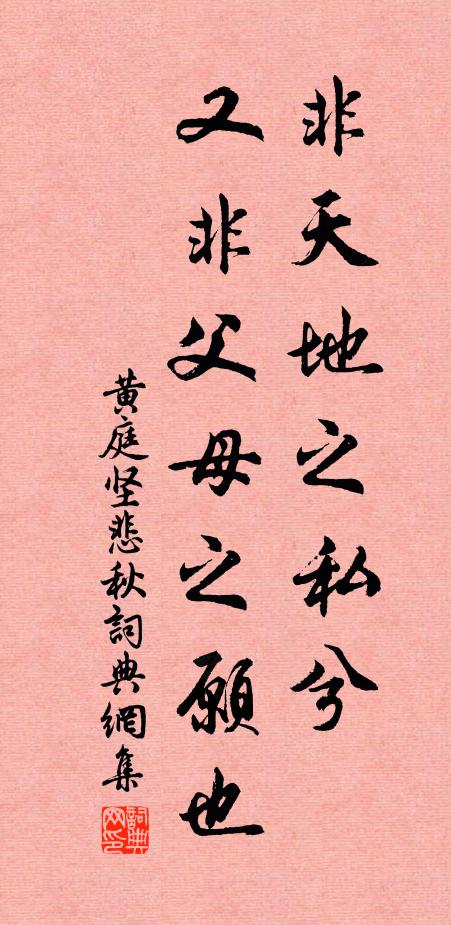 非天地之私兮
又非父母之愿也
黄庭坚悲秋詞典網集
詞典网印